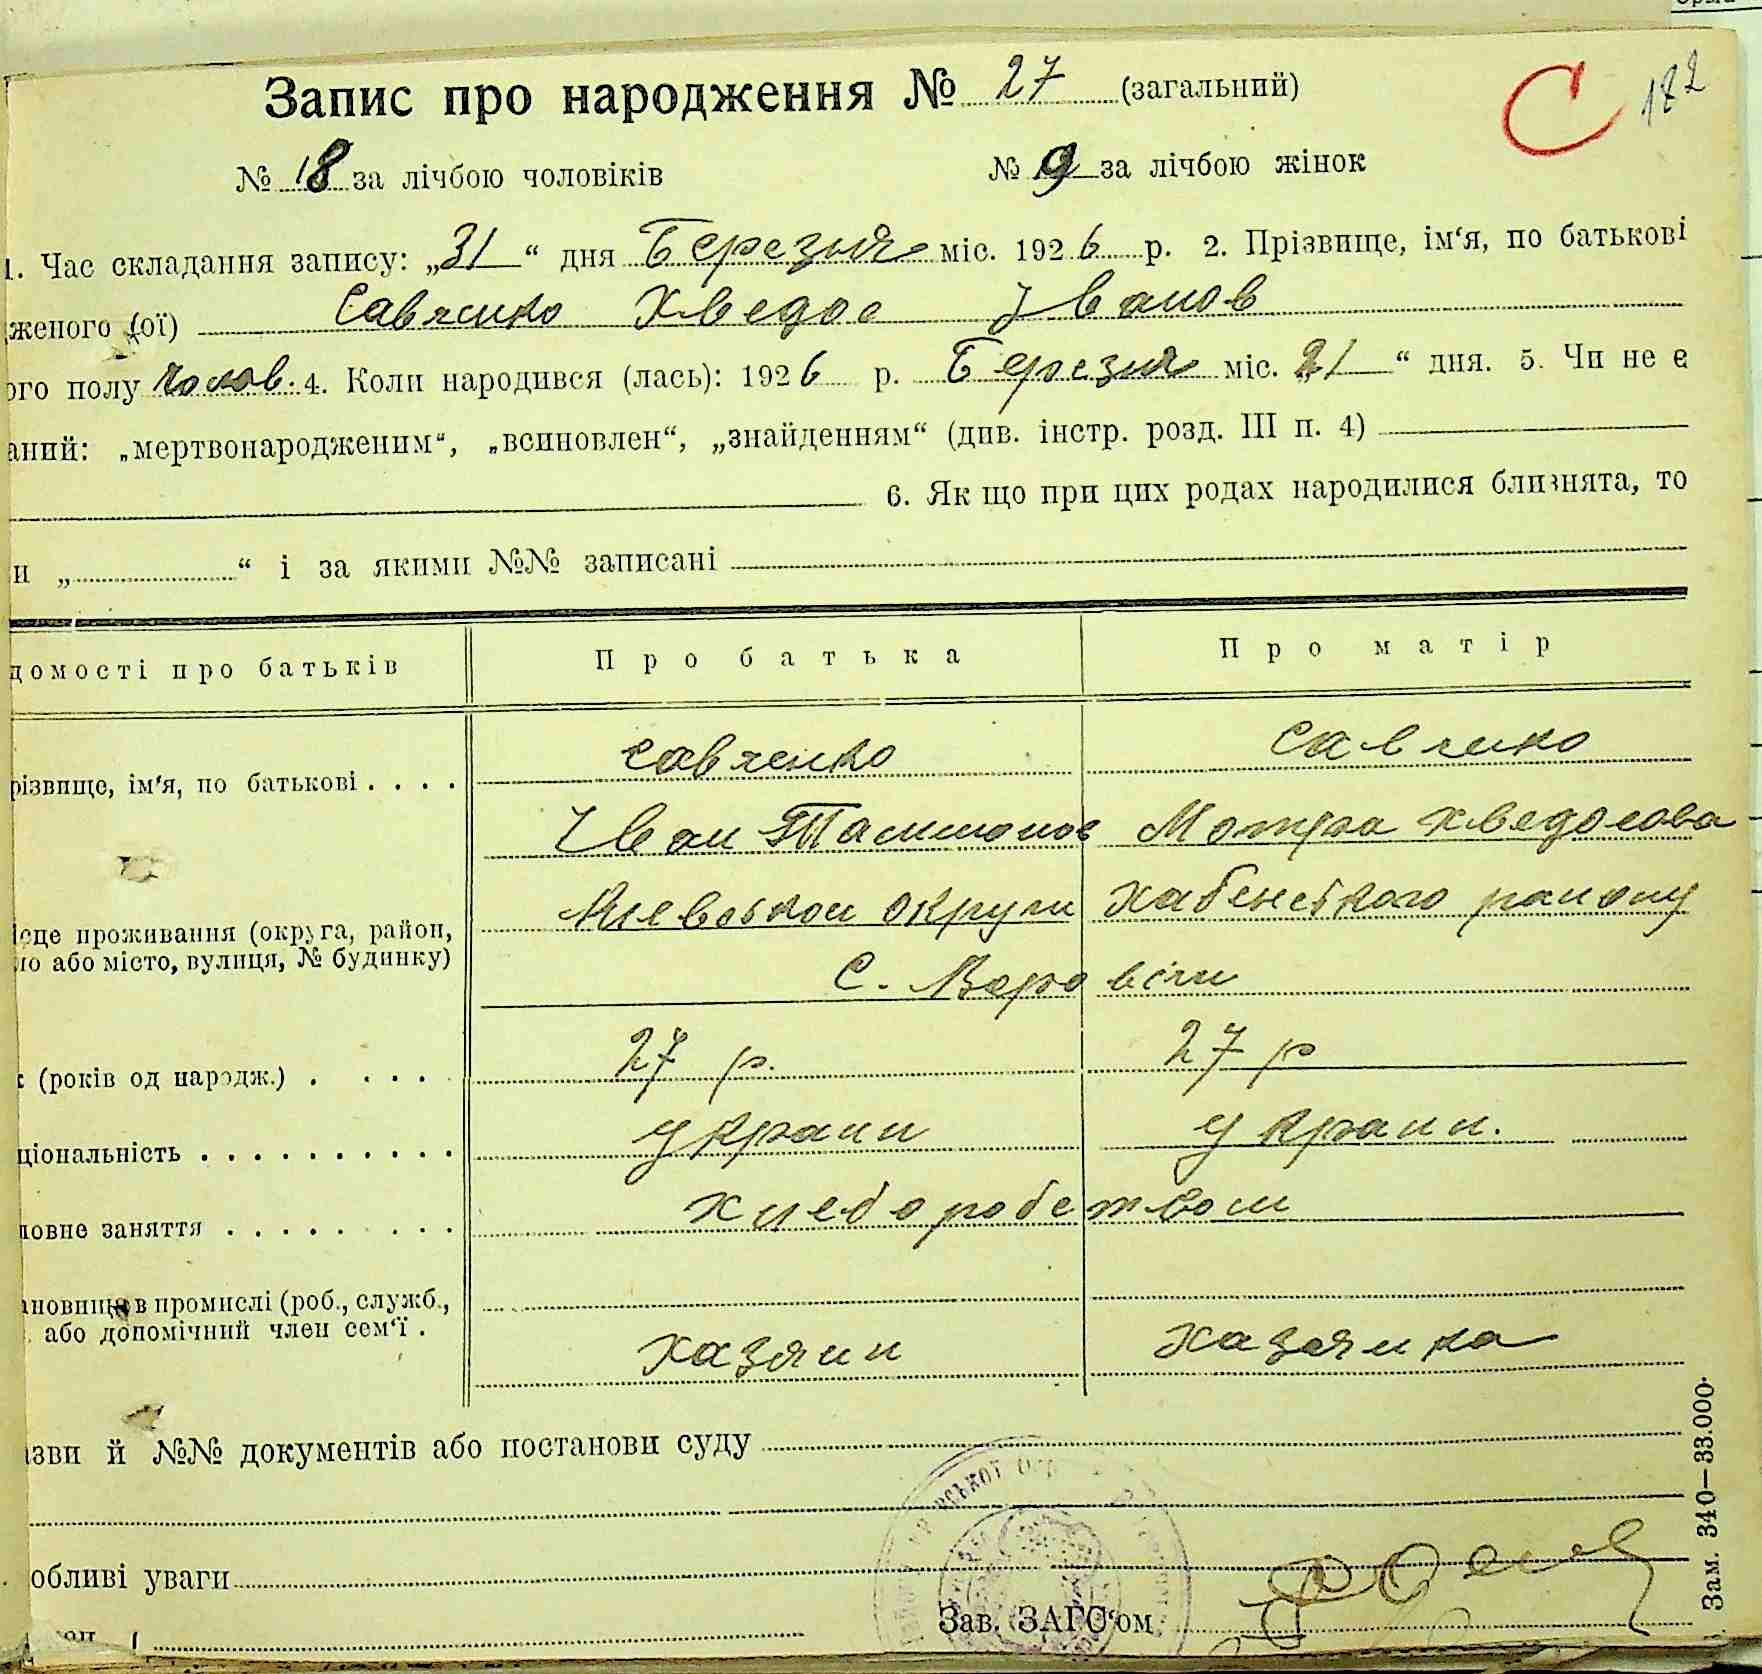 Запис про народження № 27 (загальний)
172
№ 18 за лічбою чоловіків № 9 за лічбою жінок
1. Час складання запису: „31“ дня Березня міс. 1926 р. 2. Прізвище, ім‘я, по батькові
женого (ої) Савченко Хведос Іванов
ого полу чолов. 4. Коли народився (лась): 1926 р. Березня міс. „21“ дня. 5. Чи не є
аний: „мертвонародженим“, „всиновлен“, „знайденням“ (див. інстр. розд. III п. 4)
6. Як що при цих родах народилися близнята, то
и „ “ і за якими №№ записані
домості про батьків Про батька Про матір
різвище, ім‘я, по батькові . . . . Савченко Савченко
Іван Мотра Хведосова
ісце проживання (округа, район, Киевськои округи Хабенського району
ло або місто, вулиця, № будинку) С. Варовічи
(років од народж.) . . . . . 27 р. 27 р
ціональність . . . . . . . . . . украин украин.
ловне заняття . . . . . . . . . хлеборобством
ановище в промислі (роб., служб.,
або допомічний член сем‘ї . Хазяин Хазяика
азви й №№ документів або постанови суду
обливі уваги
Зав. ЗАГС‘ом
Зам. 340—33.000.